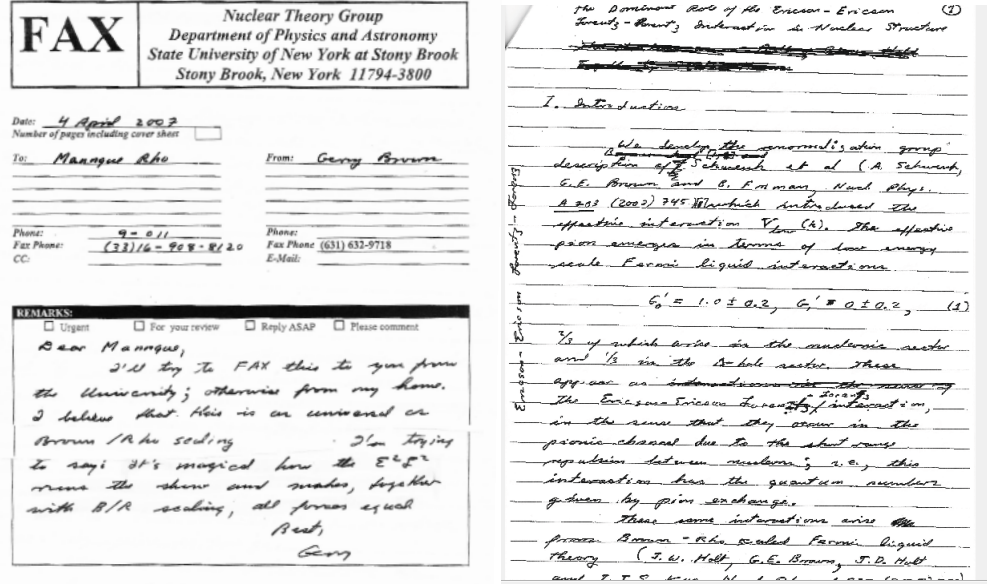 FAX
Nuclear Theory Group
Department of Physics and Astronomy
State University of New York at Stony Brook
Stony Brook, New York 11794-3800
Date: 4 April 2007
Number of pages including cover sheet
To: Mannque Rho
From: Gerry Brown
Phone: 9-011
Fax Phone: (33)16-908-8120
CC:
Phone:
Fax Phone (631) 632-9718
E-Mail:
REMARKS:
Urgent For your review Reply ASAP Please comment
Dear Mannque,
I'll try to FAX this to you from
the University; otherwise from my home.
I believe that this is as universal as
Brown/Rho scaling I'm trying
to say: It's magical how the E²L²
runs the show and makes, together
with B/R scaling, all forces equal
Best,
Gerry
The Dominant Role of the Ericson-Ericson (1)
Lorentz-Lorenz Interaction in Nuclear Structure
I. Introduction
We develop the renormalization group
description of Schwenk et al (A. Schwenk,
G.E. Brown and B. Friman, Nucl. Phys.
A 703 (2002) 745 which introduced the
effective interaction V low (k). The effective
pion emerges in terms of low energy
scale Fermi liquid interactions
G₀' = 1.0 ± 0.2, G₁' = 0 ± 0.2, (1)
2/3 of which arise in the nucleonic sector
and 1/3 in the Δ-hole sector. These
appear as
the Ericson-Ericson Lorentz-Lorenz interaction,
in the sense that they occur in the
pionic channel due to the short range
repulsion between nucleons; i.e., this
interaction has the quantum numbers
given by pion exchange.
These same interactions arise
from Brown-Rho scaled Fermi liquid
theory (J.W. Holt, G.E. Brown, J.D. Holt
and T.T.S. Kuo, Nucl. Phys.
Ericson-Ericson Lorentz-Lorenz